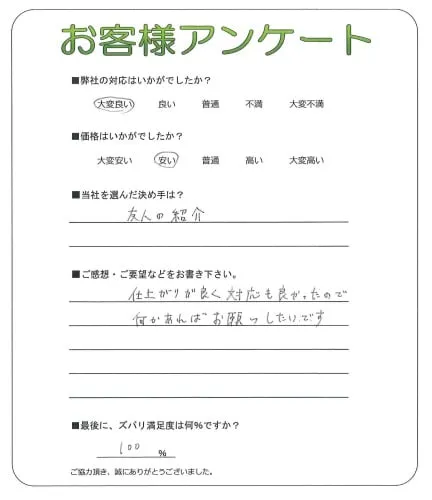 お客様アンケート
■弊社の対応はいかがでしたか？
大変良い 良い 普通 不満 大変不満
■価格はいかがでしたか？
大変安い 安い 普通 高い 大変高い
■当社を選んだ決め手は？
友人の紹介
■ご感想・ご要望などをお書き下さい。
仕上がりが良く対応も良かったので
何かあればお願いしたいです
■最後に、ズバリ満足度は何％ですか？
100 ％
ご協力頂き、誠にありがとうございました。